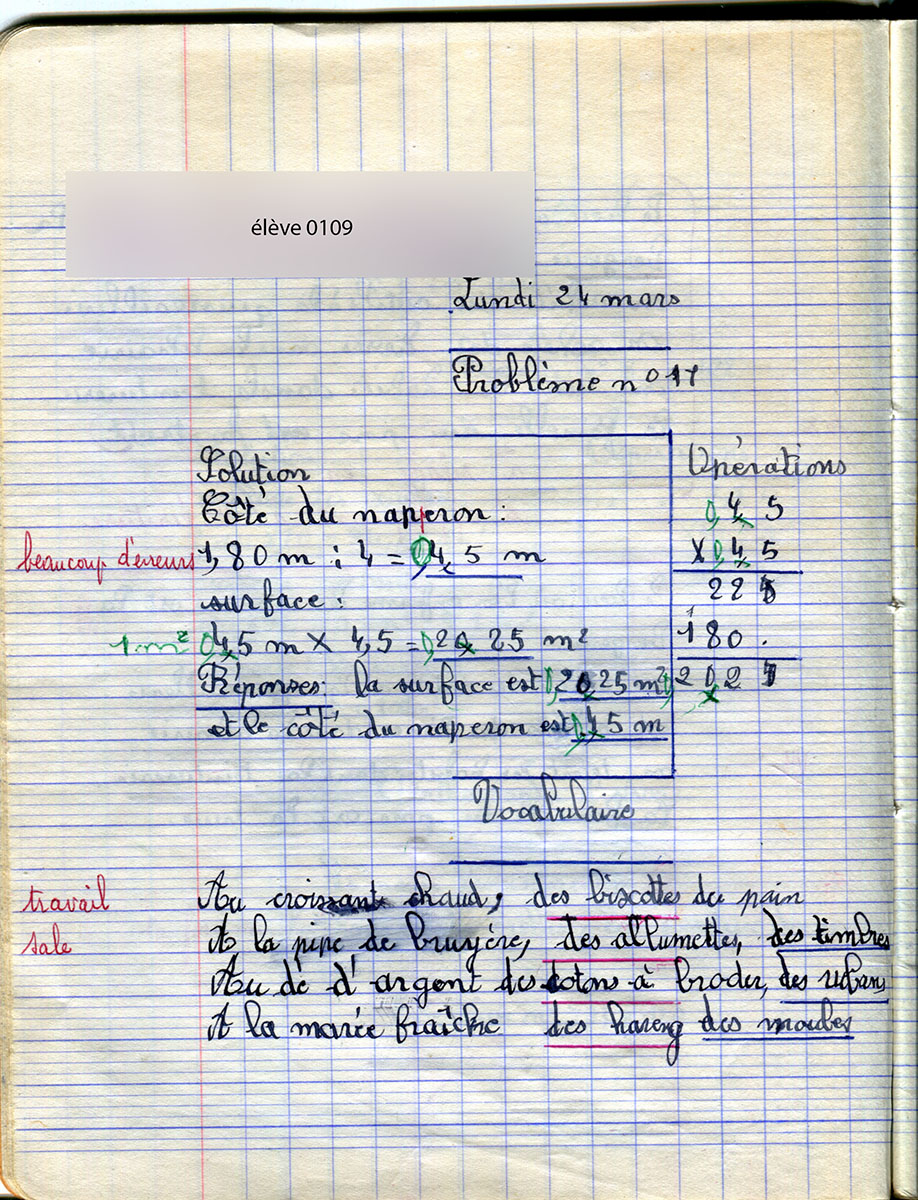 élève 0109
Lundi 24 mars
Problème n° 17
Solution
Opérations
Côté du naperon :
0,4 5
beaucoup d'erreurs
1,80 m : 4 = 0,4 5 m
X 0,4 5
surface :
2 2 5
1 m² 0,4,5 m X 4,5 = 0,20 25 m²
1 8 0 .
Réponses : la surface est 0,20 25 m²
2 0,2 5
et le côté du naperon est 0,45 m
Vocabulaire
travail
sale
Au croissant chaud, des biscottes du pain
A la pipe de bruyère, des allumettes, des timbres
Au dé d'argent des cotons à broder, des rubans
A la marée fraîche des hareng des moules